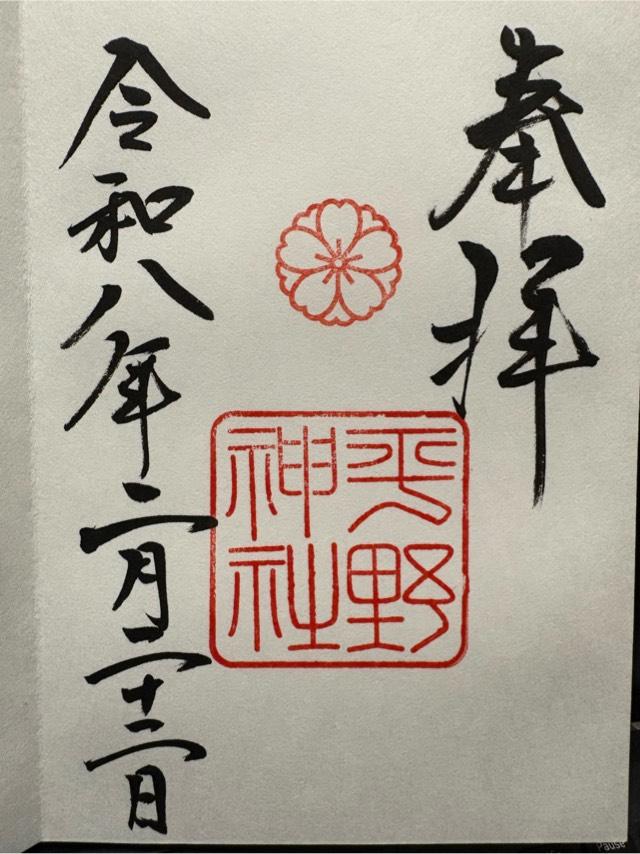 奉拝
平野
神社
令和八年二月二十二日
Pause